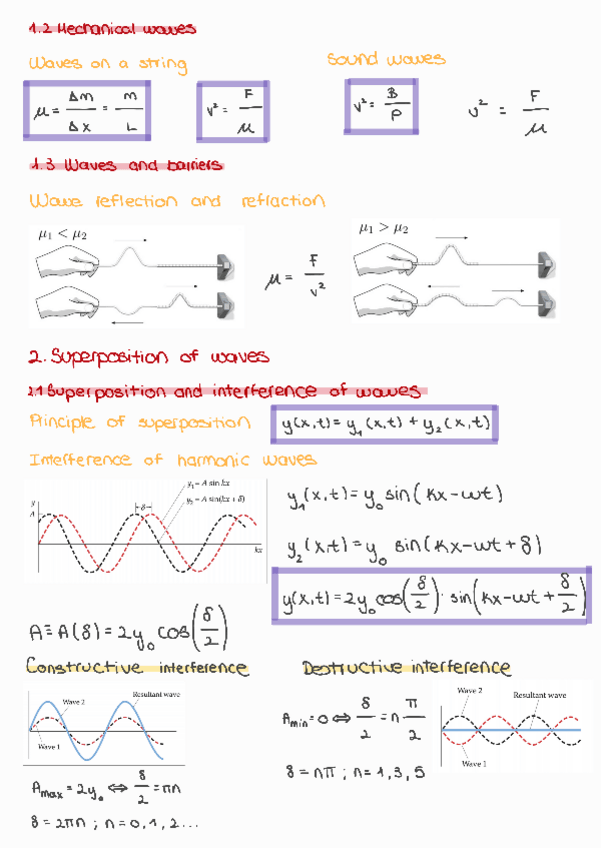 1.2 Mechanical waves
Waves on a string
Sound waves
μ = Δm/Δx = m/L
v² = F/μ
v² = B/ρ
v² = F/μ
1.3 Waves and barriers
Wave reflection and refraction
μ₁ < μ₂
μ = F/v²
μ₁ > μ₂
2. Superposition of waves
2.1 Superposition and interference of waves
Principle of superposition
y(x,t) = y₁(x,t) + y₂(x,t)
Interference of harmonic waves
y₁ = A sin kx
y₂ = A sin(kx + δ)
y
A
δ
kx
y₁(x,t) = y₀ sin(kx-wt)
y₂(x,t) = y₀ sin(kx-wt+δ)
y(x,t) = 2y₀ cos(δ/2) · sin(kx-wt+δ/2)
A ≡ A(δ) = 2y₀ cos(δ/2)
Constructive interference
Wave 2
Resultant wave
Wave 1
A max = 2y₀ ⇔ δ/2 = πn
δ = 2πn ; n = 0, 1, 2 ...
Destructive interference
A min = 0 ⇔ δ/2 = n π/2
δ = nπ ; n = 1, 3, 5
Wave 2
Resultant wave
Wave 1